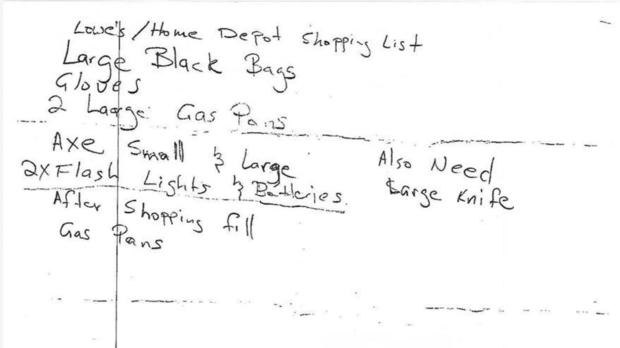 Lowe's / Home Depot Shopping List
Large Black Bags
Gloves
2 Laarge Gas Pans
Axe Small & Large
2x Flash Lights & Batteries.
After Shopping fill
Gas Pans
Also Need
Large Knife